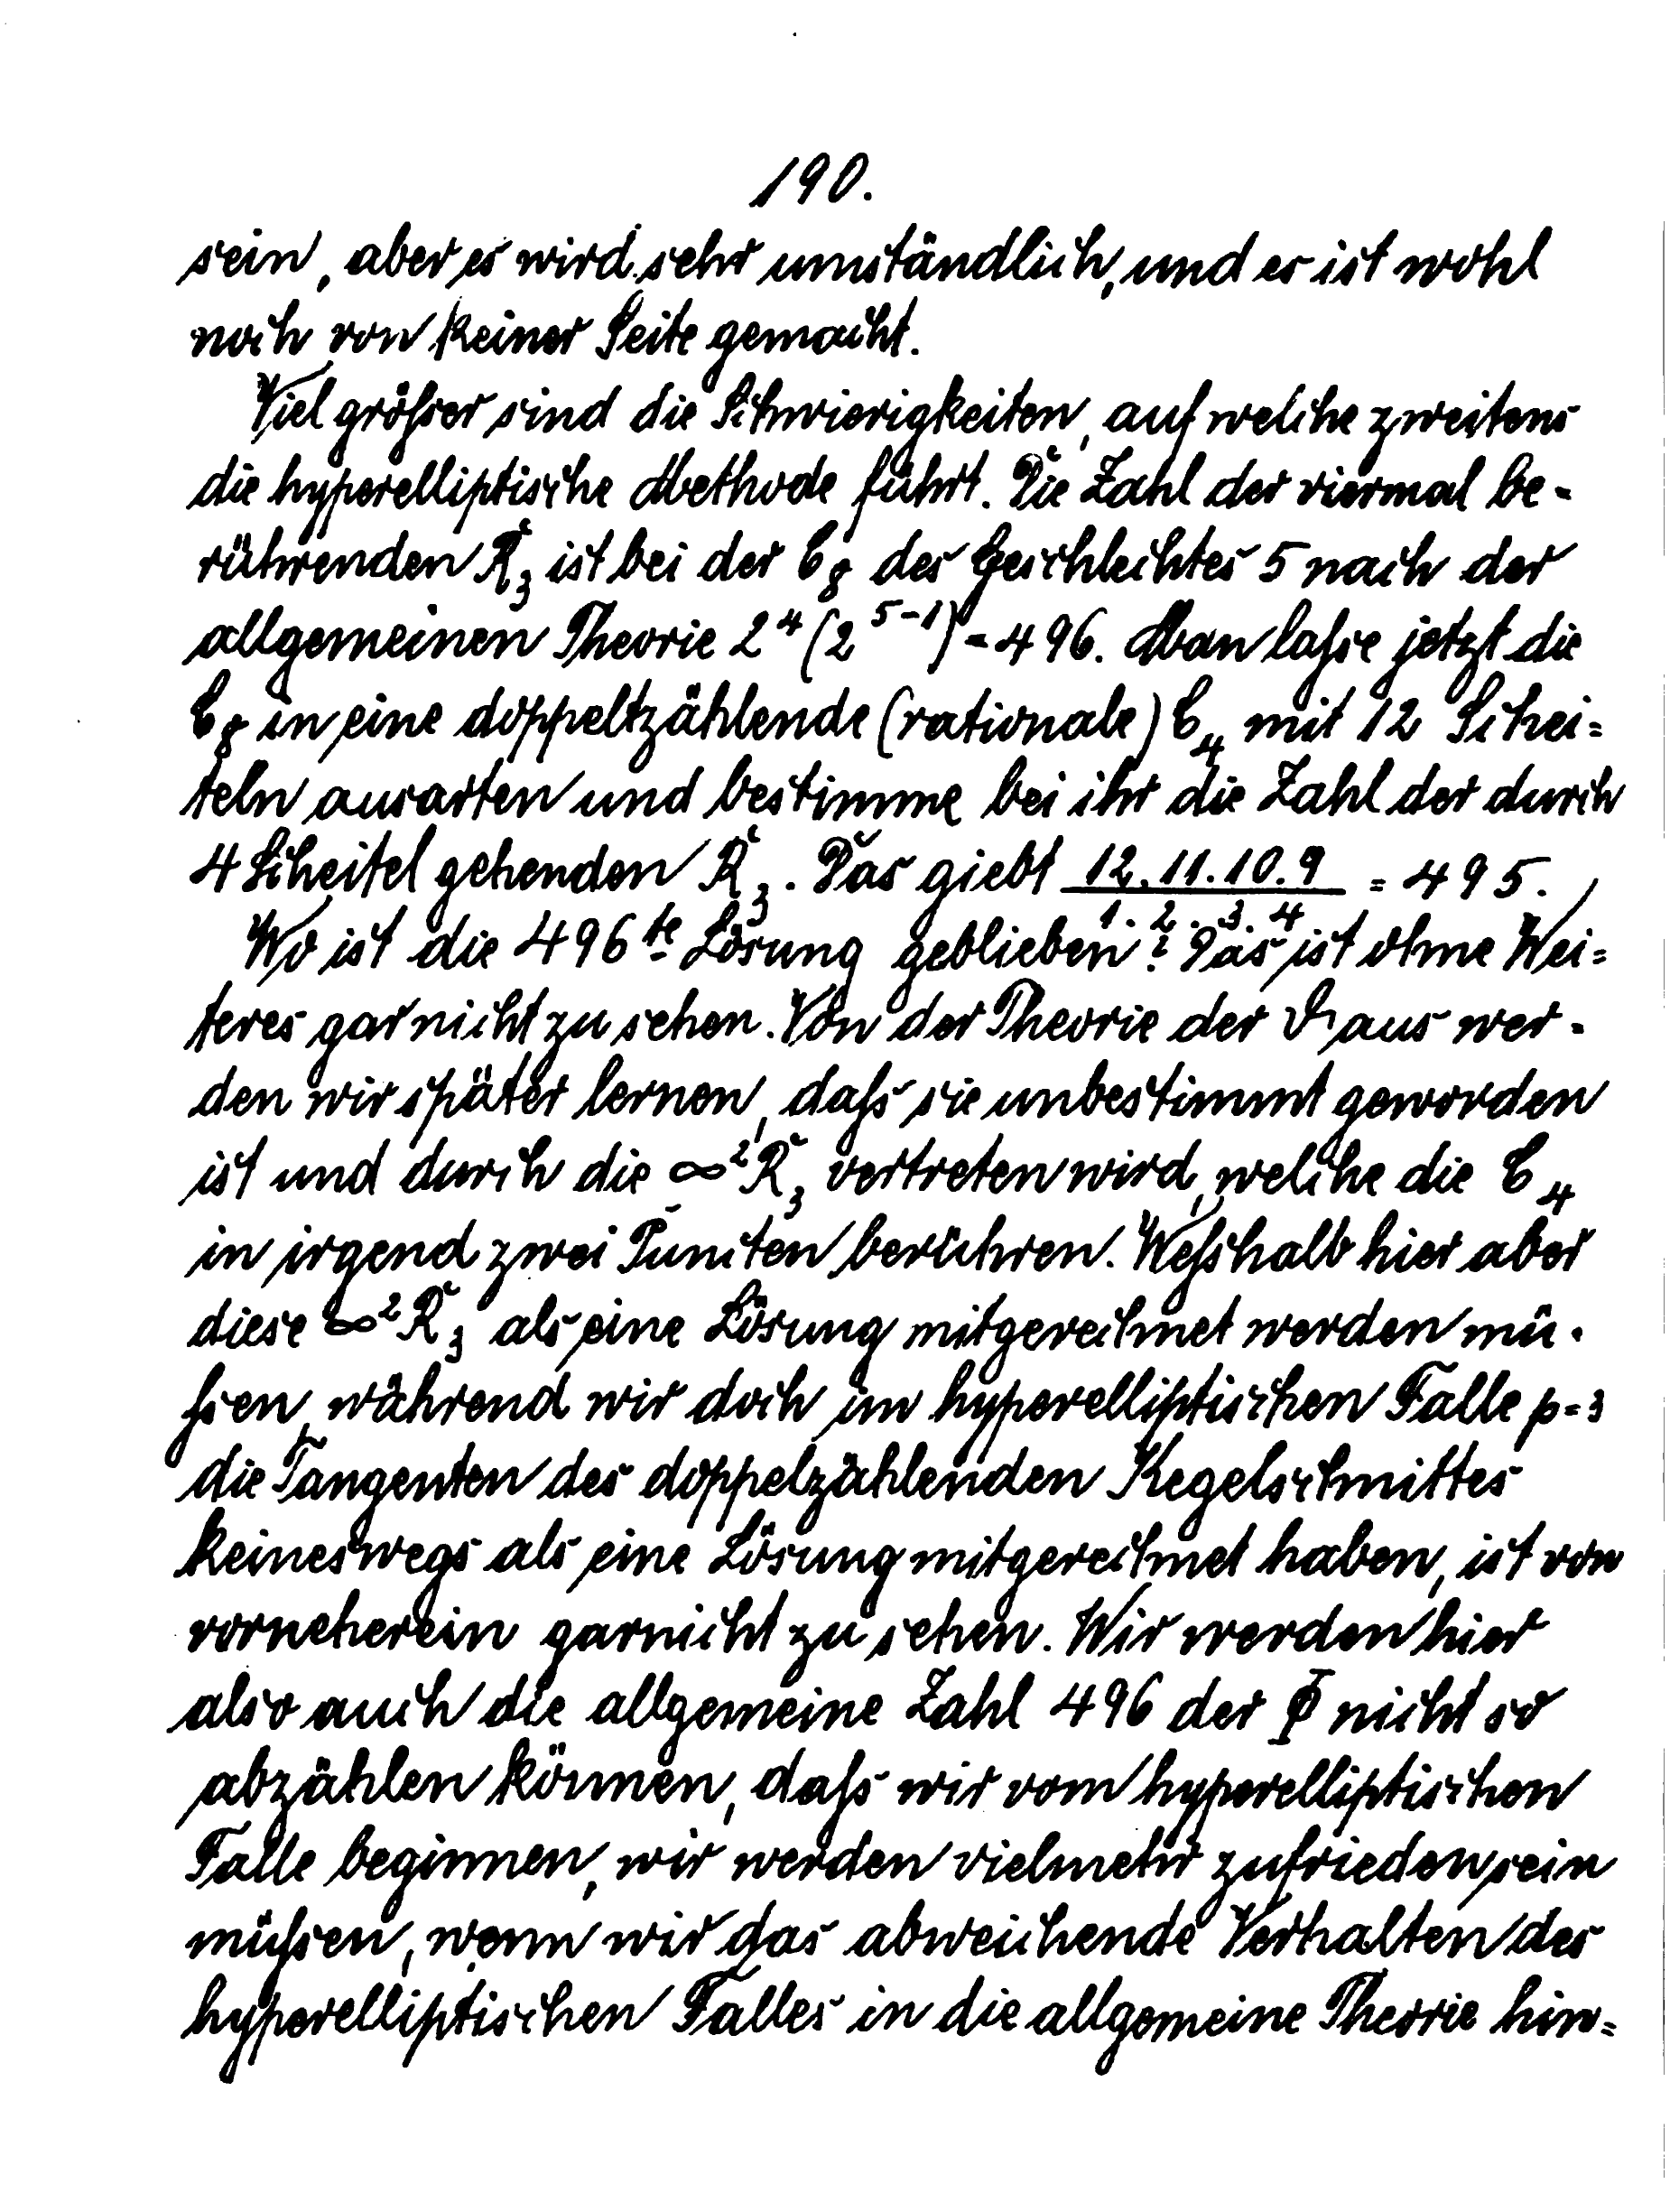 190.
sein, aber es wird sehr umständlich, und es ist wohl
noch von keiner Seite gemacht.
Viel größer sind die Schwierigkeiten, auf welche zweitens
die hyperelliptische Methode führt. Die Zahl der viermal be-
rührenden R₃ ist bei der C₈ des Geschlechtes 5 nach der
allgemeinen Theorie 2⁴(2⁵⁻¹) = 496. Man laße jetzt die
C₈ in eine doppeltzählende (rationale) C₄ mit 12 Schei=
teln ausarten und bestimme bei ihr die Zahl der durch
4 Scheitel gehenden R₃. Das giebt 12.11.10.9 / 1.2.3.4 = 495.
Wo ist die 496te Lösung geblieben? Das ist ohne Wei=
teres gar nicht zu sehen. Von der Theorie der ϑ aus wer-
den wir später lernen, daß sie unbestimmt geworden
ist und durch die ∞² R₃ vertreten wird, welche die C₄
in irgend zwei Puncten berühren. Weßhalb hier aber
diese ∞² R₃ als eine Lösung mitgerechnet werden mü-
ßen, während wir doch im hyperelliptischen Falle p=3
die Tangenten des doppelzählenden Kegelschnittes
keineswegs als eine Lösung mitgerechnet haben, ist von
vorneherein garnicht zu sehen. Wir werden hier
also auch die allgemeine Zahl 496 der Φ nicht so
abzählen können, daß wir vom hyperelliptischen
Falle beginnen, wir werden vielmehr zufrieden sein
müßen, wenn wir das abweichende Verhalten des
hyperelliptischen Falles in die allgemeine Theorie hin=